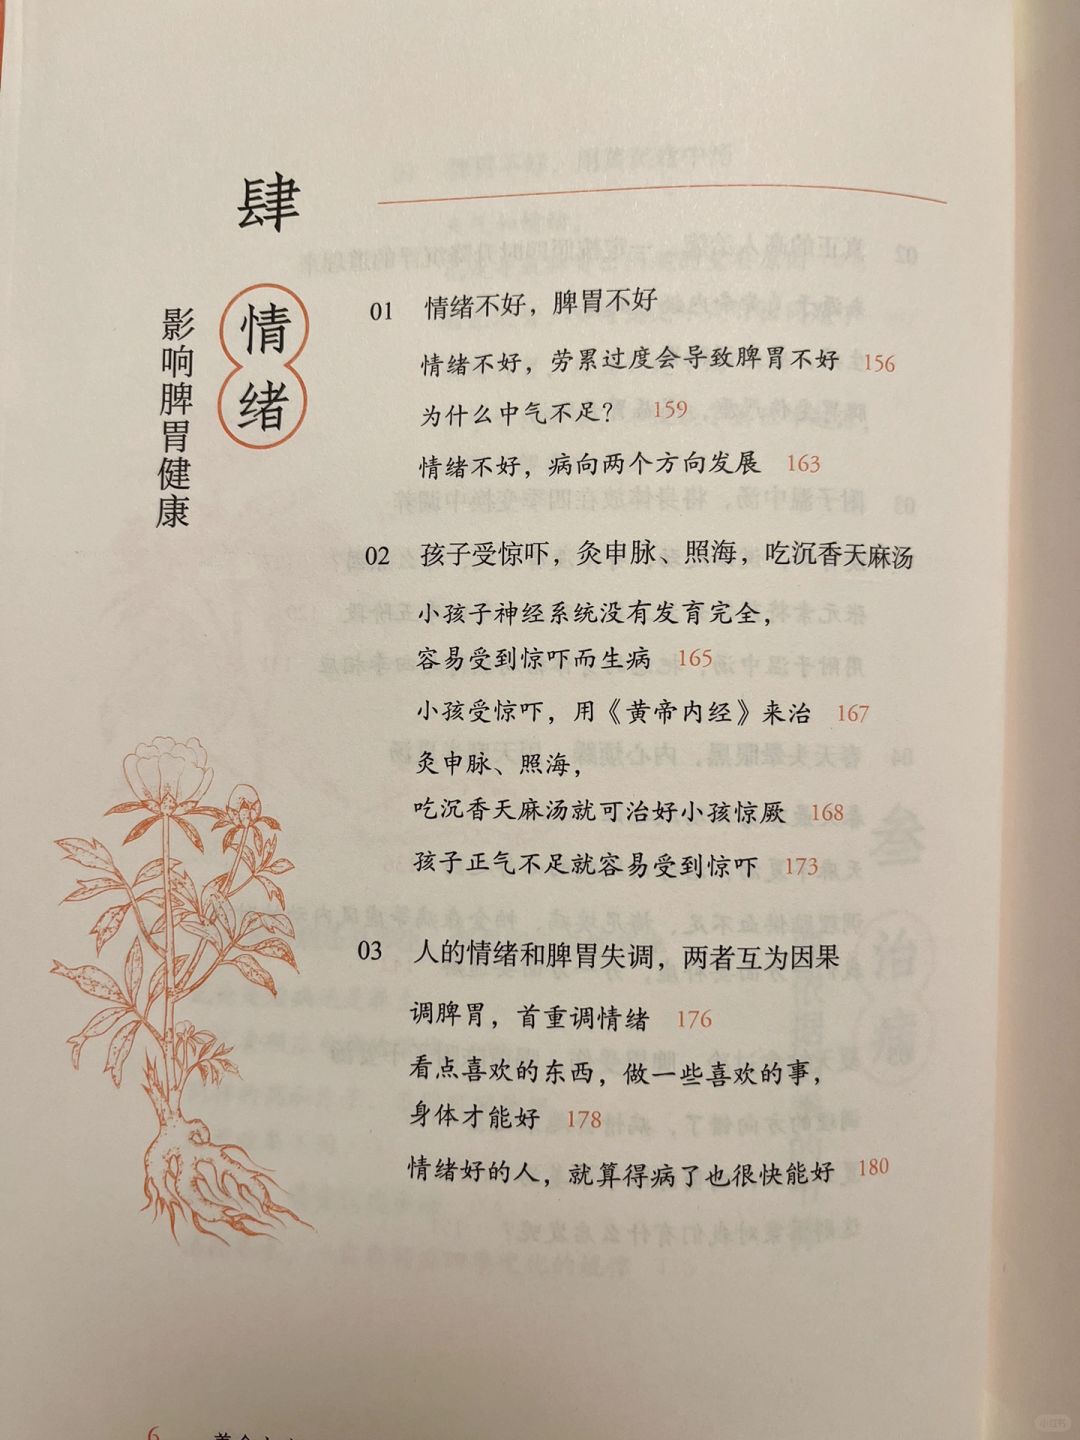 肆
情绪
影响脾胃健康
01 情绪不好，脾胃不好
情绪不好，劳累过度会导致脾胃不好 156
为什么中气不足？ 159
情绪不好，病向两个方向发展 163
02 孩子受惊吓，灸申脉、照海，吃沉香天麻汤
小孩子神经系统没有发育完全，
容易受到惊吓而生病 165
小孩受惊吓，用《黄帝内经》来治 167
灸申脉、照海，
吃沉香天麻汤就可治好小孩惊厥 168
孩子正气不足就容易受到惊吓 173
03 人的情绪和脾胃失调，两者互为因果
调脾胃，首重调情绪 176
看点喜欢的东西，做一些喜欢的事，
身体才能好 178
情绪好的人，就算得病了也很快能好 180
6
小红书